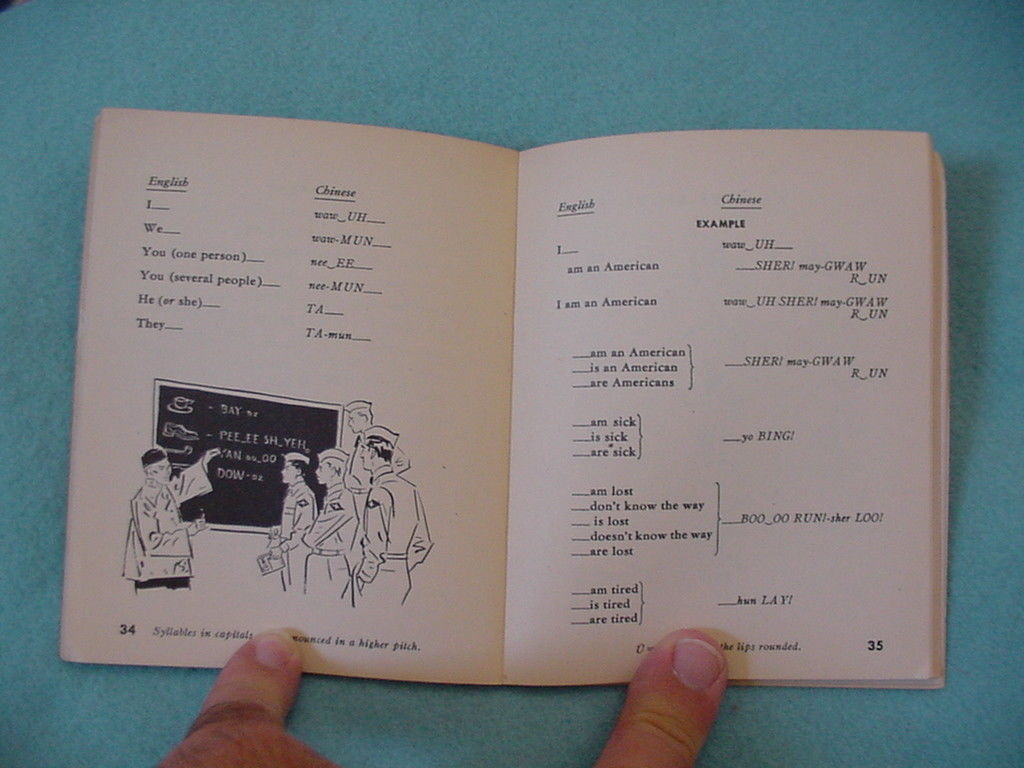 English Chinese
I___ waw‿UH___
We___ waw-MUN___
You (one person)___ nee‿EE___
You (several people)___ nee-MUN___
He (or she)___ TA___
They___ TA-mun___
- BAY oz
- PEE‿EE SH‿YEH
YAN oo‿OO
DOW-oz
34 Syllables in capitals in a higher pitch.
English Chinese
EXAMPLE
I___ waw‿UH___
am an American ___SHER! may-GWAW
R‿UN
I am an American waw‿UH SHER! may-GWAW
R‿UN
___am an American
___is an American ___SHER! may-GWAW
___are Americans R‿UN
___am sick
___is sick ___yo BING!
___are sick
___am lost
___don't know the way
___ is lost ___BOO‿OO RUN!-sher LOO!
___doesn't know the way
___are lost
___am tired
___is tired ___hun LAY!
___are tired
the lips rounded. 35